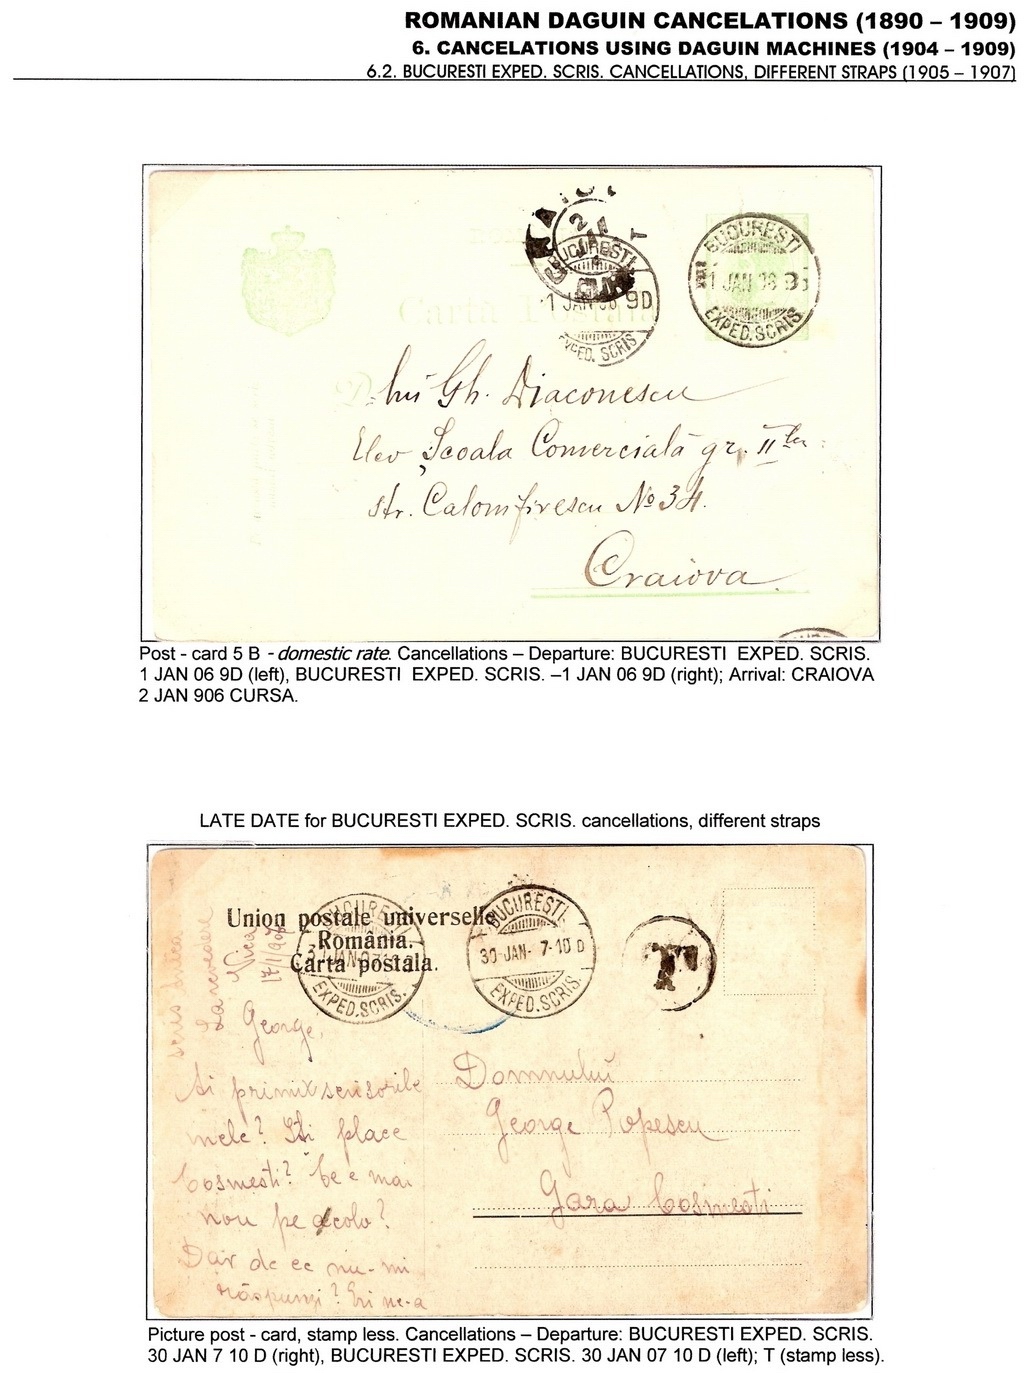 ROMANIAN DAGUIN CANCELATIONS (1890 – 1909)
6. CANCELATIONS USING DAGUIN MACHINES (1904 – 1909)
6.2. BUCURESTI EXPED. SCRIS. CANCELLATIONS, DIFFERENT STRAPS (1905 – 1907)
BUCURESTI
1 JAN 06 9D
EXPED. SCRIS
BUCURESTI
EXPED.SCRIS
Carta Postala
Gh. Diaconescu
Elev Școala Comercială gr. II
str. Calomfirescu No 34.
Craiova
Post - card 5 B - domestic rate. Cancellations – Departure: BUCURESTI EXPED. SCRIS.
1 JAN 06 9D (left), BUCURESTI EXPED. SCRIS. –1 JAN 06 9D (right); Arrival: CRAIOVA
2 JAN 906 CURSA.
LATE DATE for BUCURESTI EXPED. SCRIS. cancellations, different straps
Union postale universelle
România.
Carta postala.
BUCURESTI
EXPED.SCRIS.
BUCURESTI.
30-JAN- 7-10 D
EXPED.SCRIS.
T
George,
Ai primit scrisorile
mele? Iți place
Cosmești? Ce e mai
nou pe acolo?
Dar de ce nu-mi
răspunzi?
Domnului
George Popescu
Gara Cosmesti
Picture post - card, stamp less. Cancellations – Departure: BUCURESTI EXPED. SCRIS.
30 JAN 7 10 D (right), BUCURESTI EXPED. SCRIS. 30 JAN 07 10 D (left); T (stamp less).